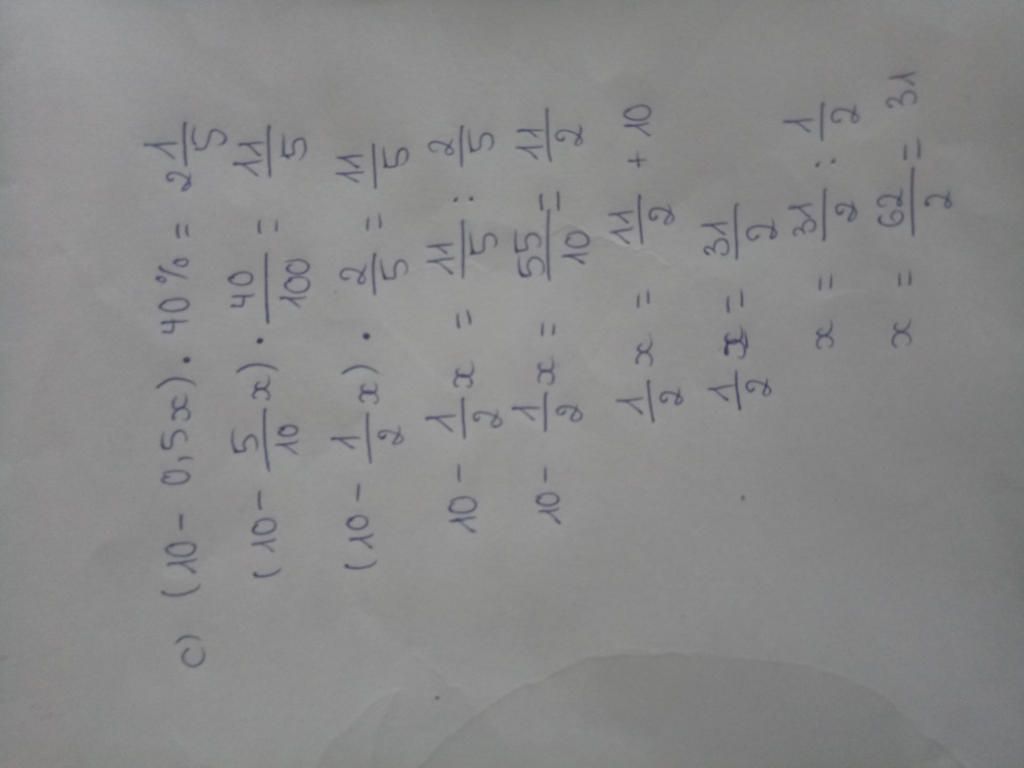 c) (10 - 0,5x) . 40% = 2 1/5
(10 - 5/10 x) . 40/100 = 11/5
(10 - 1/2 x) . 2/5 = 11/5
10 - 1/2 x = 11/5 : 2/5
10 - 1/2 x = 55/10 = 11/2
1/2 x = 11/2 + 10
1/2 x = 31/2
x = 31/2 : 1/2
x = 62/2 = 31